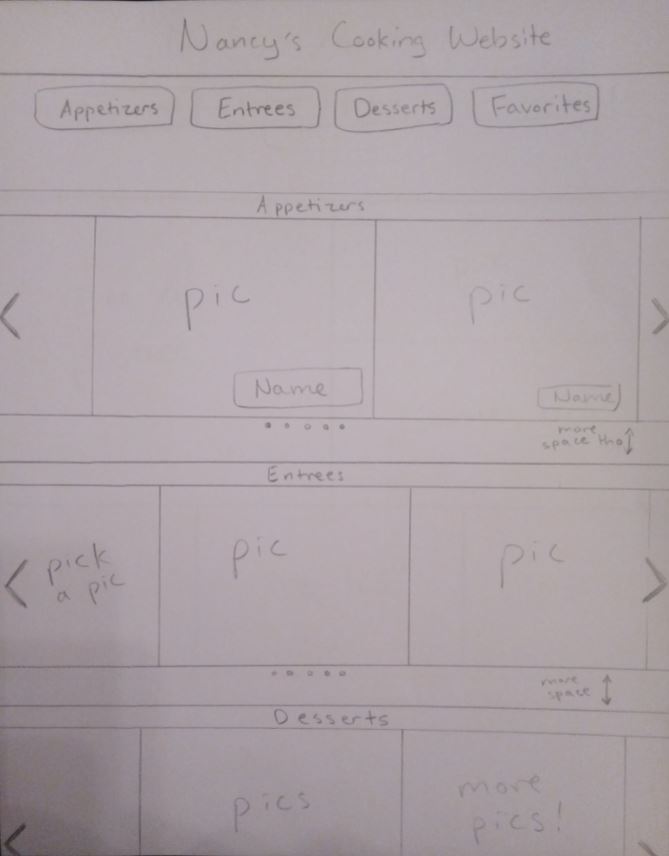 Nancy's Cooking Website
Appetizers Entrees Desserts Favorites
Appetizers
pic pic
Name Name
more
space tho
Entrees
pick
a pic
pic pic
more
space
Desserts
pics
more
pics!